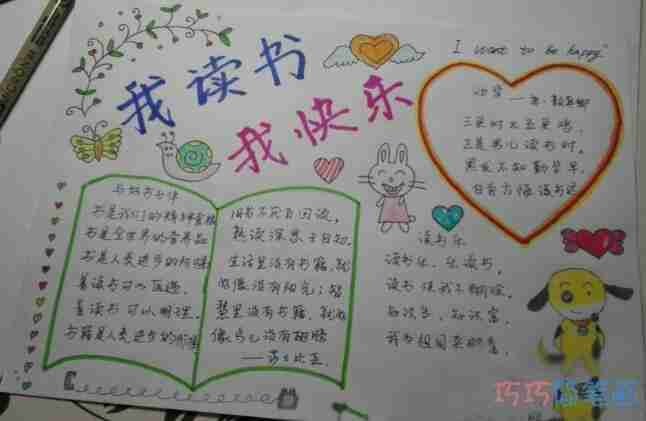 我读书
我快乐
I want to be happy
劝学——唐·颜真卿
三更灯火五更鸡,
正是男儿读书时。
黑发不知勤学早,
白首方悔读书迟
与好书为伴
书是我们的精神食粮
书是全世界的营养品
书是人类进步的阶梯
善读书可以医愚
善读书可以明理
书籍是人类进步的阶梯
旧书不厌百回读,
熟读深思子自知。
生活里没有书籍,就
好像没有阳光;智
慧里没有书籍,就好
像鸟儿没有翅膀
——莎士比亚
读书乐
读书乐,乐读书,
读书使我不糊涂。
知识多,知识富,
巧巧简笔画